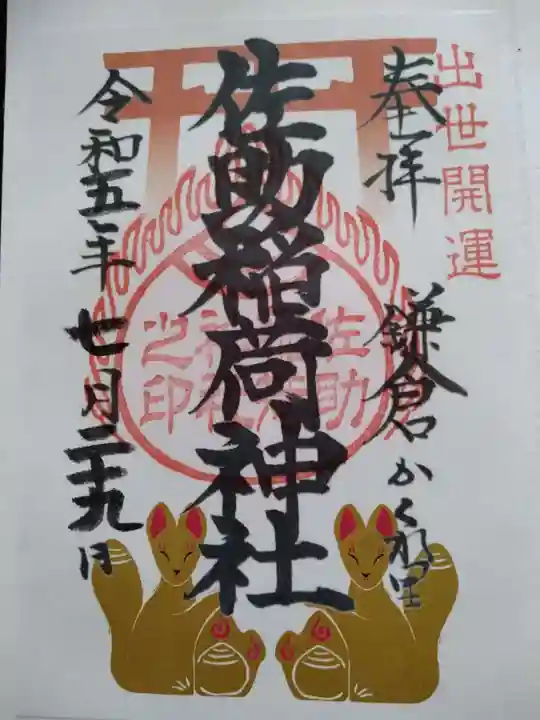 出世開運
奉拝
鎌倉かくれ里
佐助稲荷神社
佐助稲荷
神社之印
令和五年七月二十九日